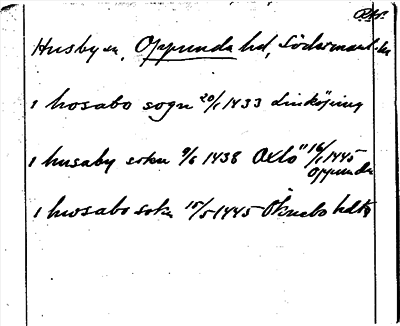 Husby sn, Oppunda hd, Södermanl. län
i hosabo sogn 20/1 1433 Linköping
i husaby sokn 9/6 1438
16/1 1445
Oppunda
i hwsabo sokn 15/5 1445 Öknebo hdtb